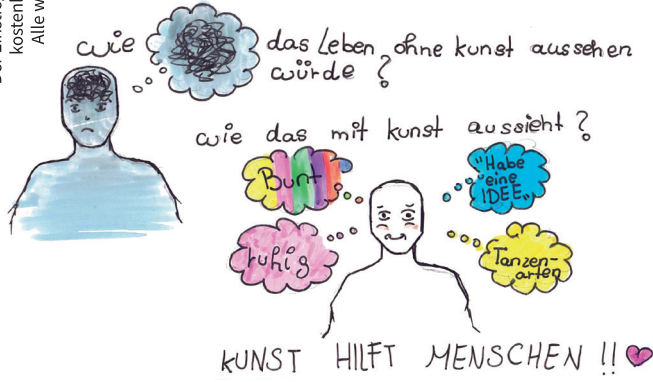 kostenl
Alle w
wie das Leben ohne kunst aussehen
würde?
wie das mit kunst aussieht?
Bunt
"Habe
eine
IDEE"
ruhig
Tanzen-
arten
KUNST HILFT MENSCHEN !!